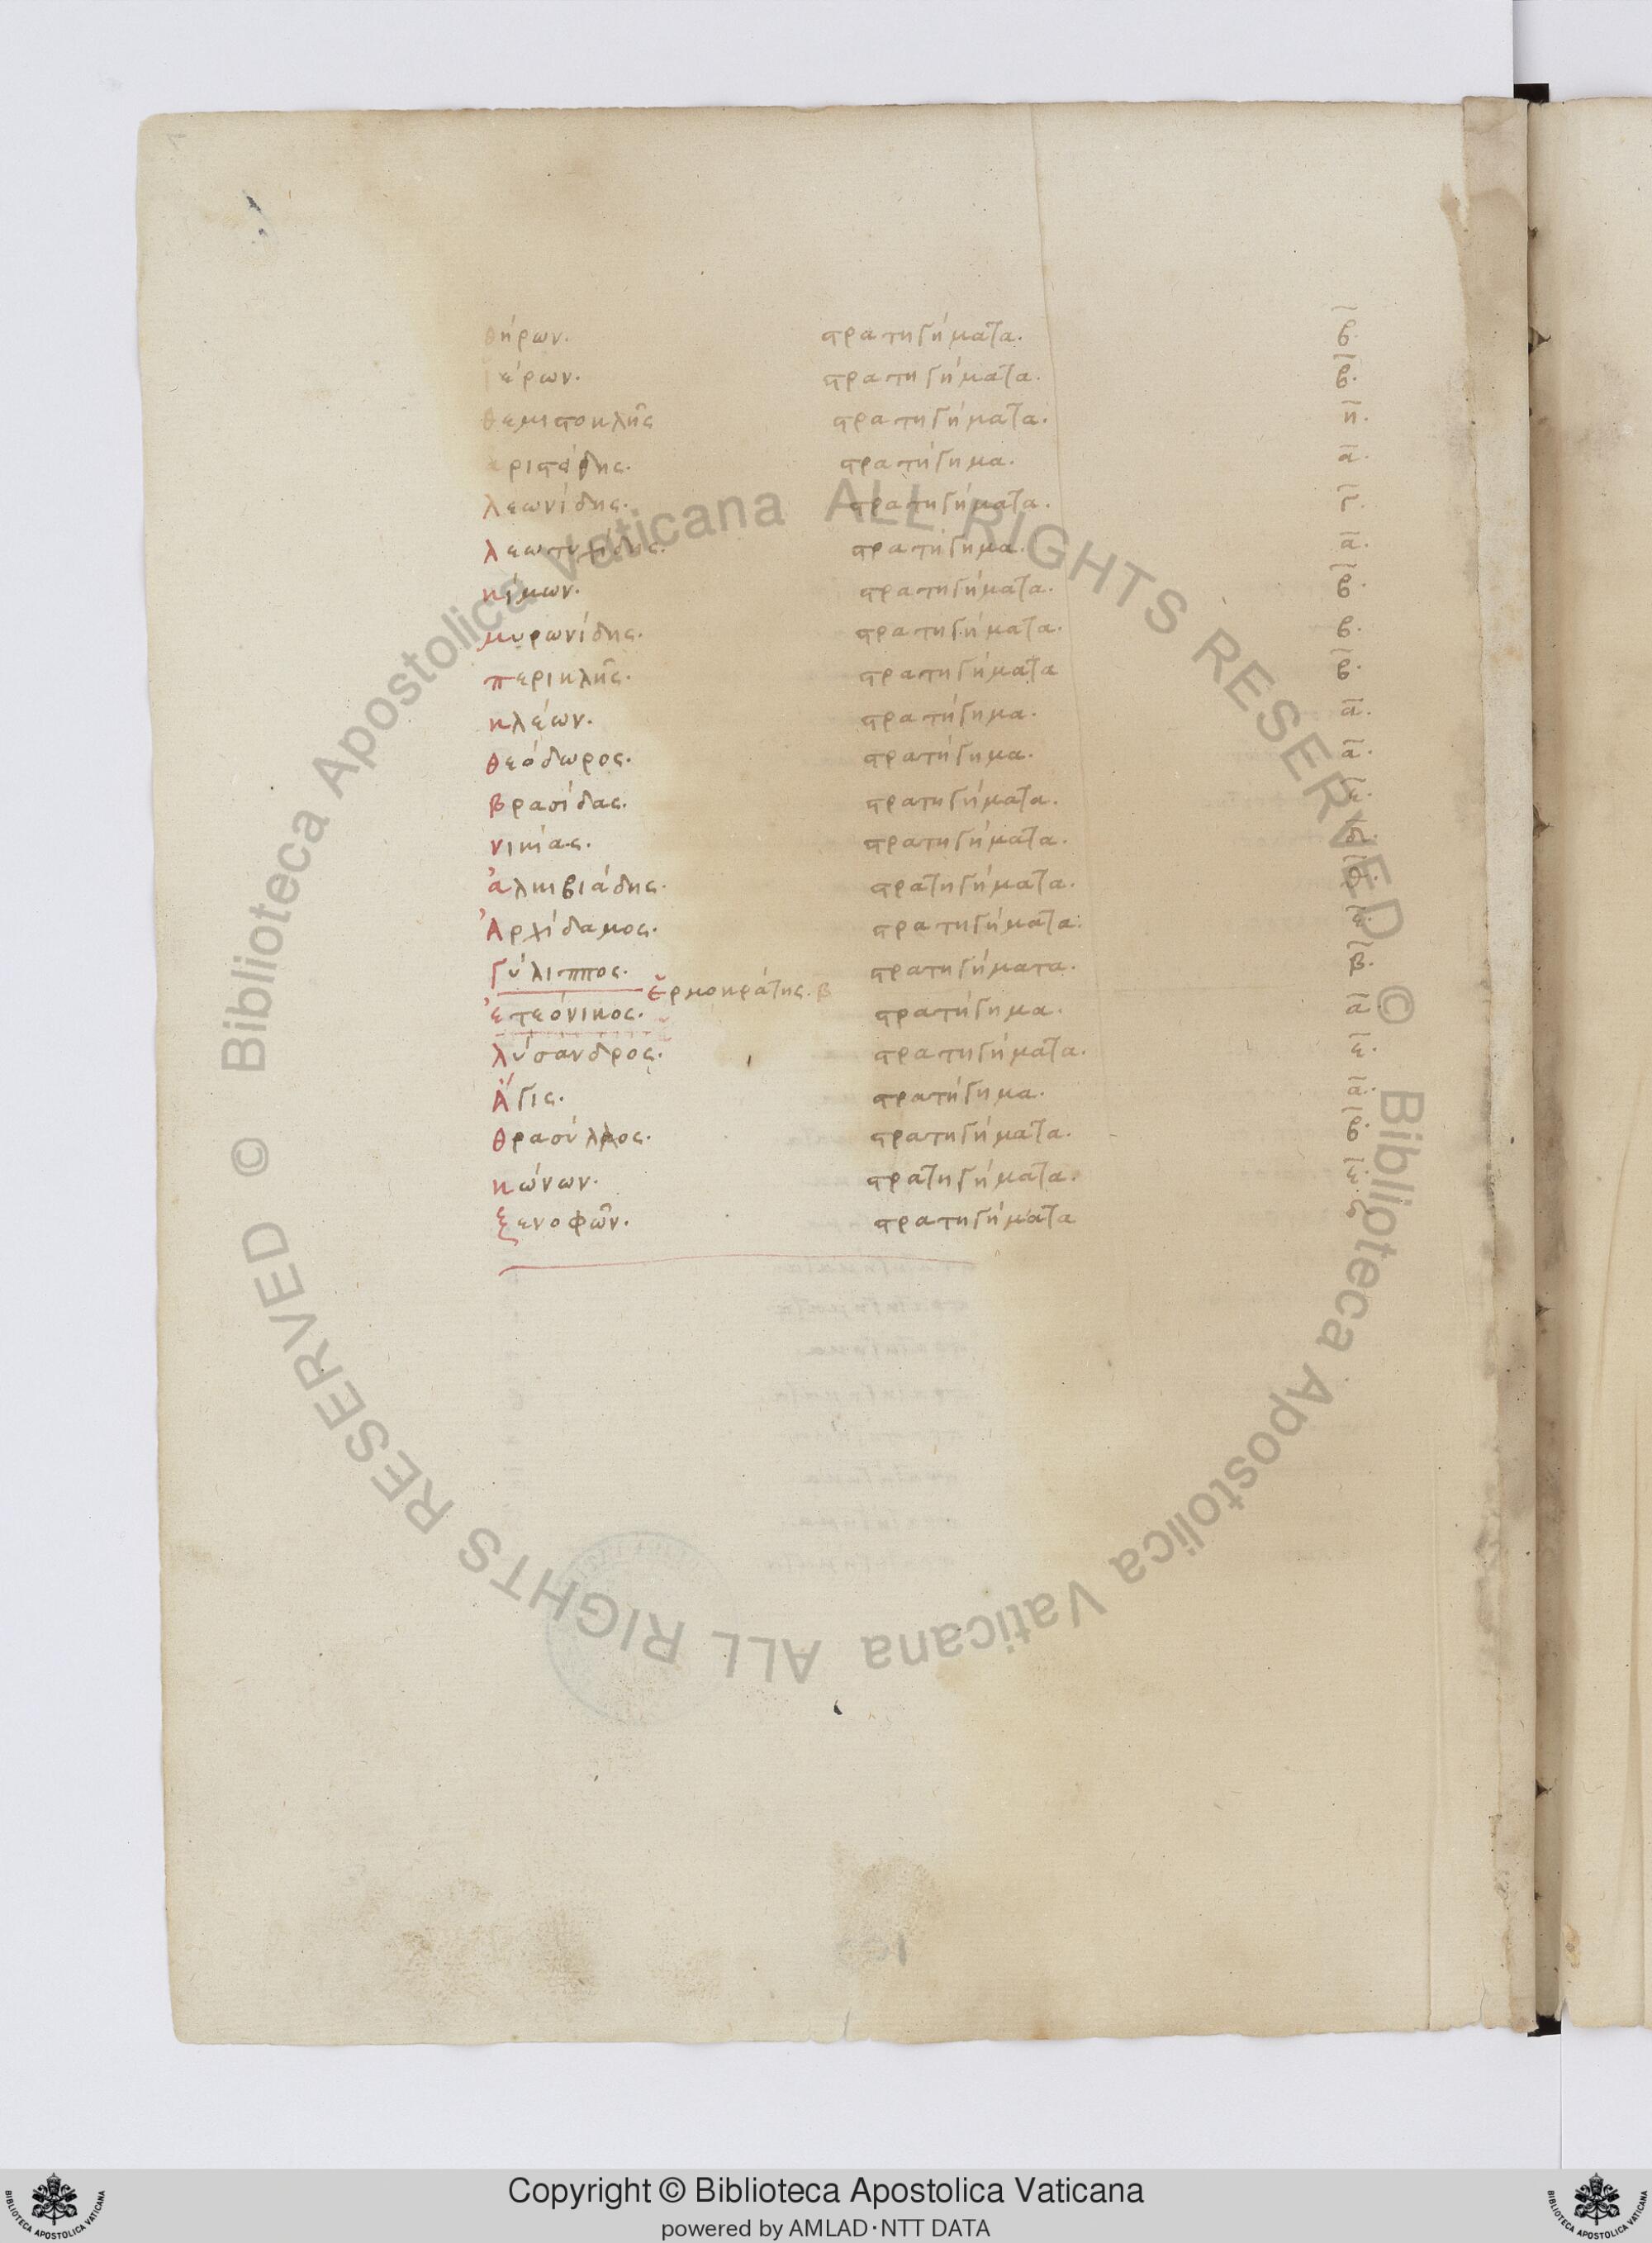 θήρων. στρατηγήματα. β̅.
ἱέρων. στρατηγήματα. β̅.
θεμιστοκλῆς στρατηγήματα. η̅.
αριστείδης. στρατήγημα. α̅.
λεωνίδης. στρατηγήματα. γ̅.
λεωτυχίδης. στρατήγημα. α̅.
κίμων. στρατηγήματα. β̅.
μυρωνίδης. στρατηγήματα. β.
περικλῆς. στρατηγήματα β̅.
κλέων. στρατήγημα. α̅.
θεόδωρος. στρατήγημα. α̅.
βρασίδας. στρατηγήματα. ε̅.
νικίας. στρατηγήματα.
ἀλκιβιάδης. στρατηγήματα. θ̅.
Ἀρχίδαμος. στρατηγήματα. ε̅.
γύλιππος. στρατηγήματα. β̅.
ἑρμοκράτης. β
ἐτεόνικος. στρατήγημα. α̅.
λύσανδρος. στρατηγήματα. ε̅.
Ἄγις. στρατήγημα. α̅.
θρασύλλος. στρατηγήματα. β̅.
κώνων. στρατηγήματα. ε̅.
ξενοφῶν. στρατηγήματα
© Biblioteca Apostolica Vaticana ALL RIGHTS RESERVED
© Biblioteca Apostolica Vaticana ALL RIGHTS RESERVED
Copyright © Biblioteca Apostolica Vaticana
powered by AMLAD·NTT DATA
BIBLIOTECA APOSTOLICA VATICANA
BIBLIOTECA APOSTOLICA VATICANA